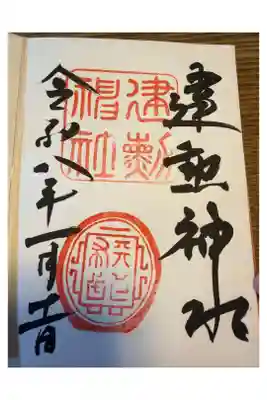 建勲神社
建勳
神社
令和八年一月十一日